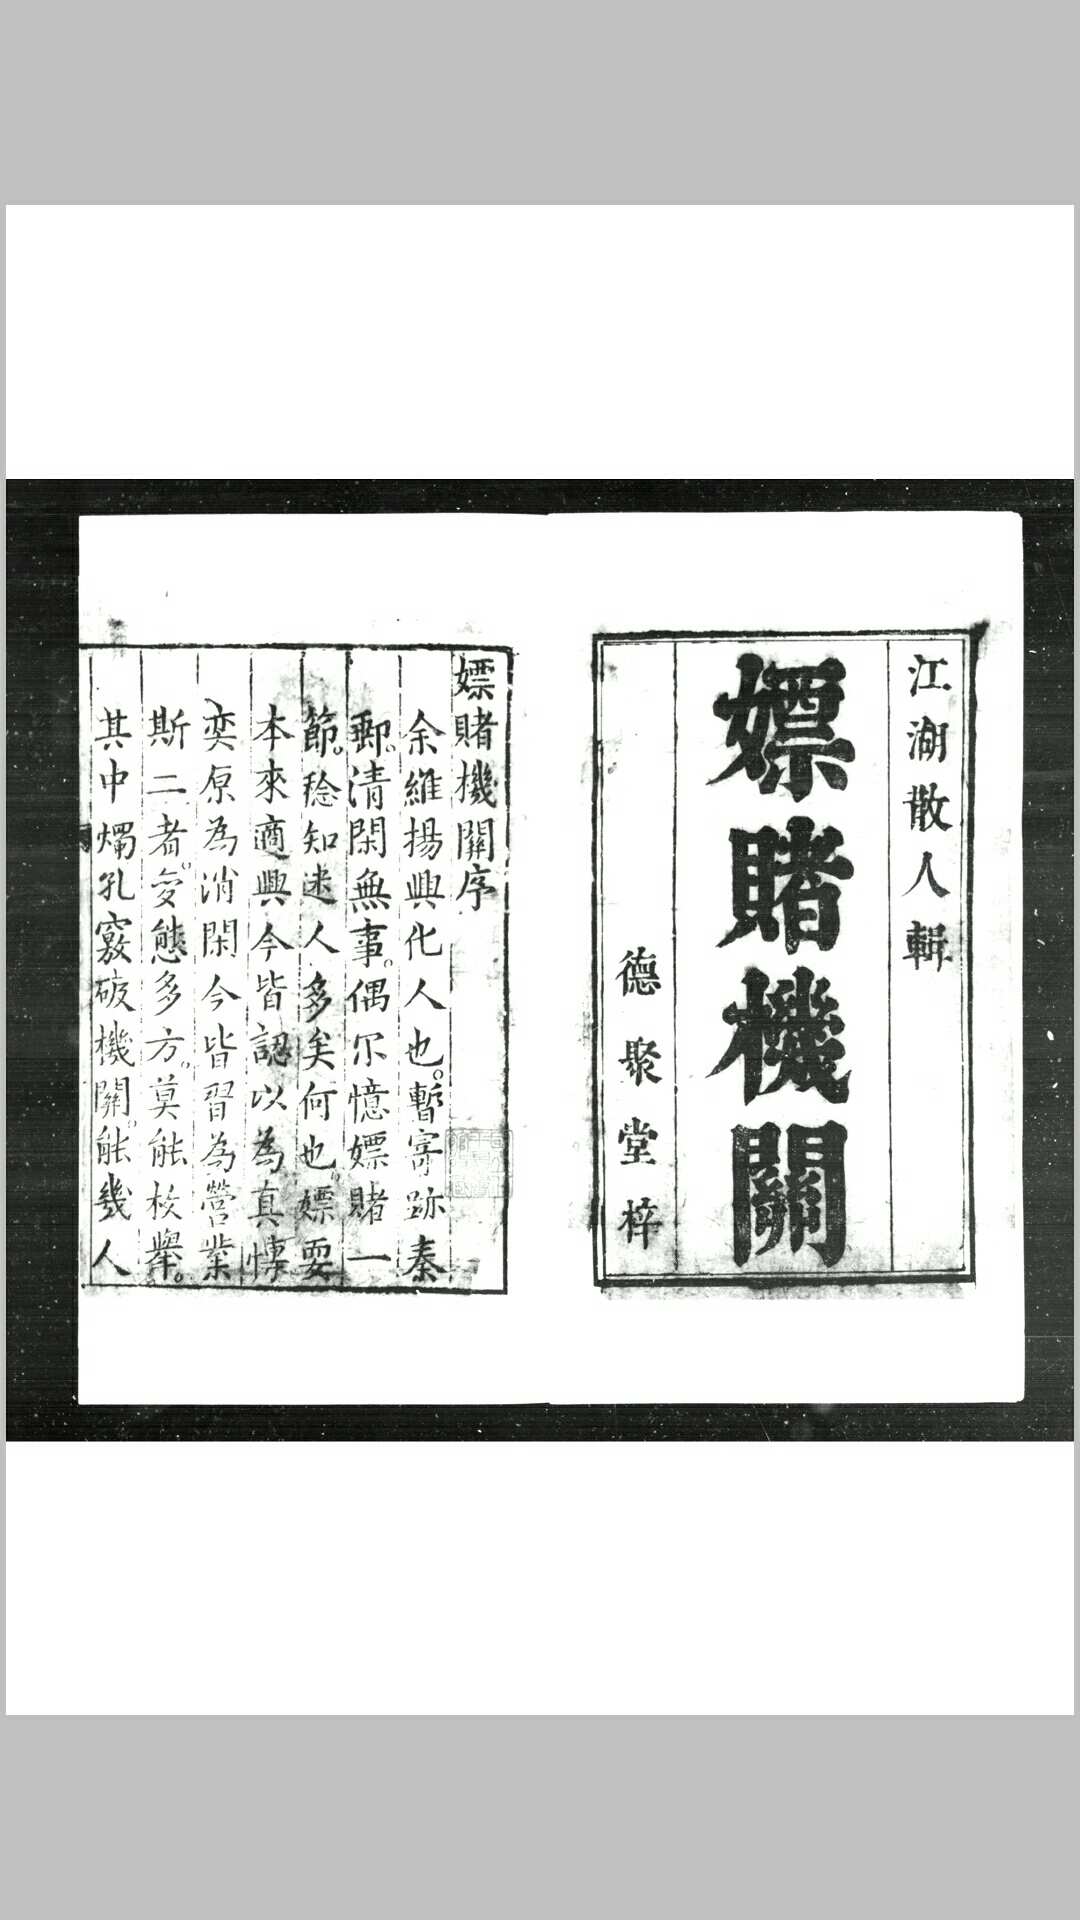 江湖散人輯
嫖賭機關
德聚堂梓
嫖賭機關序
余維揚興化人也。暫寄跡秦
郵。清閑無事。偶尔憶嫖賭一
節。稔知迷人多矣何也。嫖耍
本來適興今皆認以為真情
奕原為消閑今皆習為營業
斯二者。變態多方。莫能枚舉。
其中燭孔竅破機關。能幾人